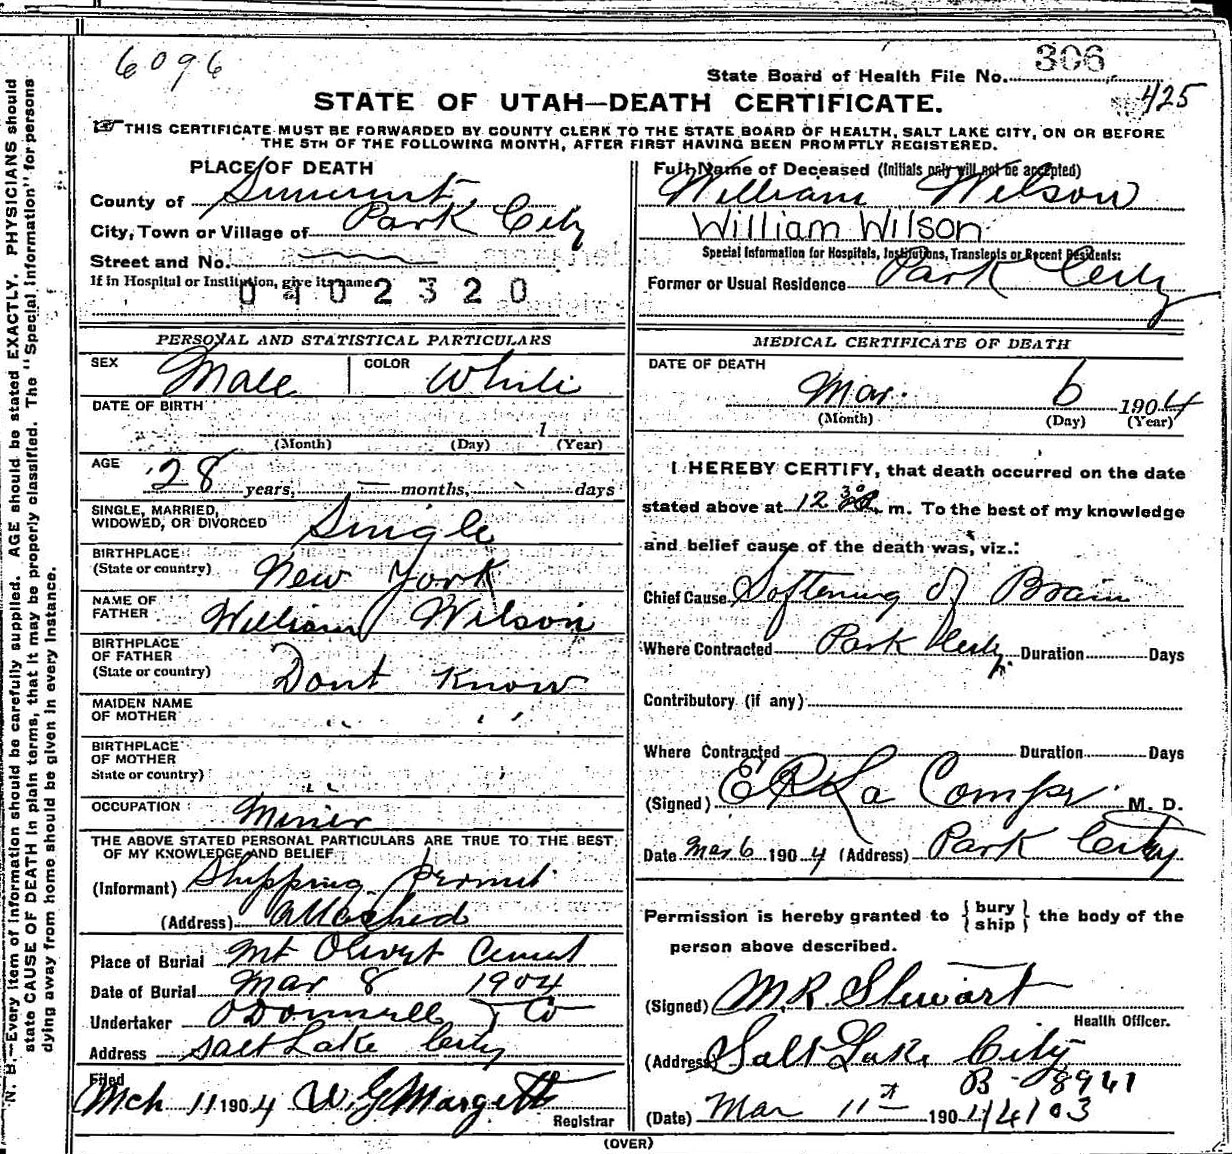 6096
306
State Board of Health File No.
425
STATE OF UTAH—DEATH CERTIFICATE.
THIS CERTIFICATE MUST BE FORWARDED BY COUNTY CLERK TO THE STATE BOARD OF HEALTH, SALT LAKE CITY, ON OR BEFORE
THE 5TH OF THE FOLLOWING MONTH, AFTER FIRST HAVING BEEN PROMPTLY REGISTERED.
PLACE OF DEATH
County of Summit
City, Town or Village of Park City
Street and No.
If in Hospital or Institution, give its name
0402320
Full Name of Deceased (Initials only will not be accepted)
William Wilson
William Wilson
Special Information for Hospitals, Institutions, Transients or Recent Residents:
Former or Usual Residence Park City
PERSONAL AND STATISTICAL PARTICULARS
SEX Male COLOR White
DATE OF BIRTH
1
(Month) (Day) (Year)
AGE 28 years, — months, days
SINGLE, MARRIED,
WIDOWED, OR DIVORCED Single
BIRTHPLACE
(State or country) New York
NAME OF
FATHER William Wilson
BIRTHPLACE
OF FATHER
(State or country) Dont Know
MAIDEN NAME
OF MOTHER " "
BIRTHPLACE
OF MOTHER
State or country) "
OCCUPATION Miner
THE ABOVE STATED PERSONAL PARTICULARS ARE TRUE TO THE BEST
OF MY KNOWLEDGE AND BELIEF
(Informant) Shipping Permit
(Address) Attached
Place of Burial Mt Olivet Cemet
Date of Burial Mar 8 1904
Undertaker O Donnell & Co
Address Salt Lake City
Filed
Mch 11 1904 W. G. Margetts
Registrar
MEDICAL CERTIFICATE OF DEATH
DATE OF DEATH
Mar. 6 1904
(Month) (Day) (Year)
I HEREBY CERTIFY, that death occurred on the date
stated above at 12 30 m. To the best of my knowledge
and belief cause of the death was, viz.:
Chief Cause Softening of Brain
Where Contracted Park City Duration Days
Contributory (if any)
Where Contracted Duration Days
(Signed) E P La Compe M. D.
Date Mar 6 1904 (Address) Park City
Permission is hereby granted to {bury ship} the body of the
person above described.
(Signed) M. R. Stewart
Health Officer.
(Address) Salt Lake City
B - 8941
(Date) Mar 11th 1904 4103
(OVER)
N. B.—Every item of information should be carefully supplied. AGE should be stated EXACTLY. PHYSICIANS should
state CAUSE OF DEATH in plain terms, that it may be properly classified. The "Special Information" for persons
dying away from home should be given in every instance.